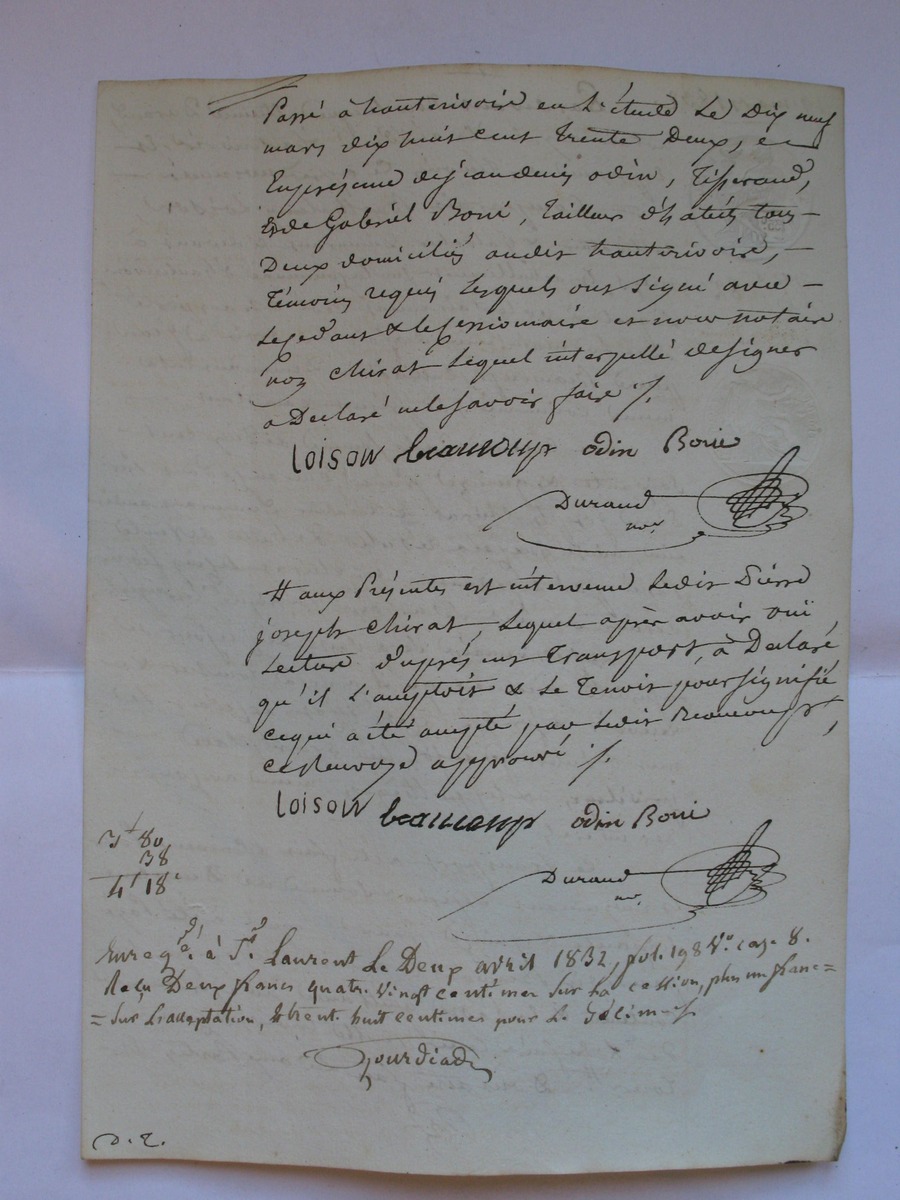 Passé à hauterivoire en L'étude Le Dix neuf
mars dix huit cent trente Deux, en
En présence de jean denis odin, Tisserand,
& de Gabriel Borie, Tailleur d'habits tous
Deux domiciliés audit hauterivoire,
Témoins requis lesquels ont signé avec
le cedant & le cessionnaire et nous notaire
non chirat lequel interpellé de signer
a Declaré ne le savoir faire ./.
Loison beaucoup odin Borie
Durand
nore
# aux Présentes est intervenu ledit Pierre
joseph chirat, lequel après avoir ouï
Lecture du présent Transport, à Declaré
qu'il L'acceptoit & le Tenoit pour signifié
ce qui a été accepté par ledit Beaucoup,
ce Renvoye approuvé ./.
Loison beaucoup odin Borie
Durand
nre.
3f 80
38
4f 18c
Enregé. à St. Laurent Le Deux avril 1832, fol. 198 Vo. case 8.
Reçu Deux francs quatre Vingt centimes sur La cession, plus un franc =
= sur L'adaptation, & trente huit centimes pour Le Décime ./.
Gourdiad
D. T.